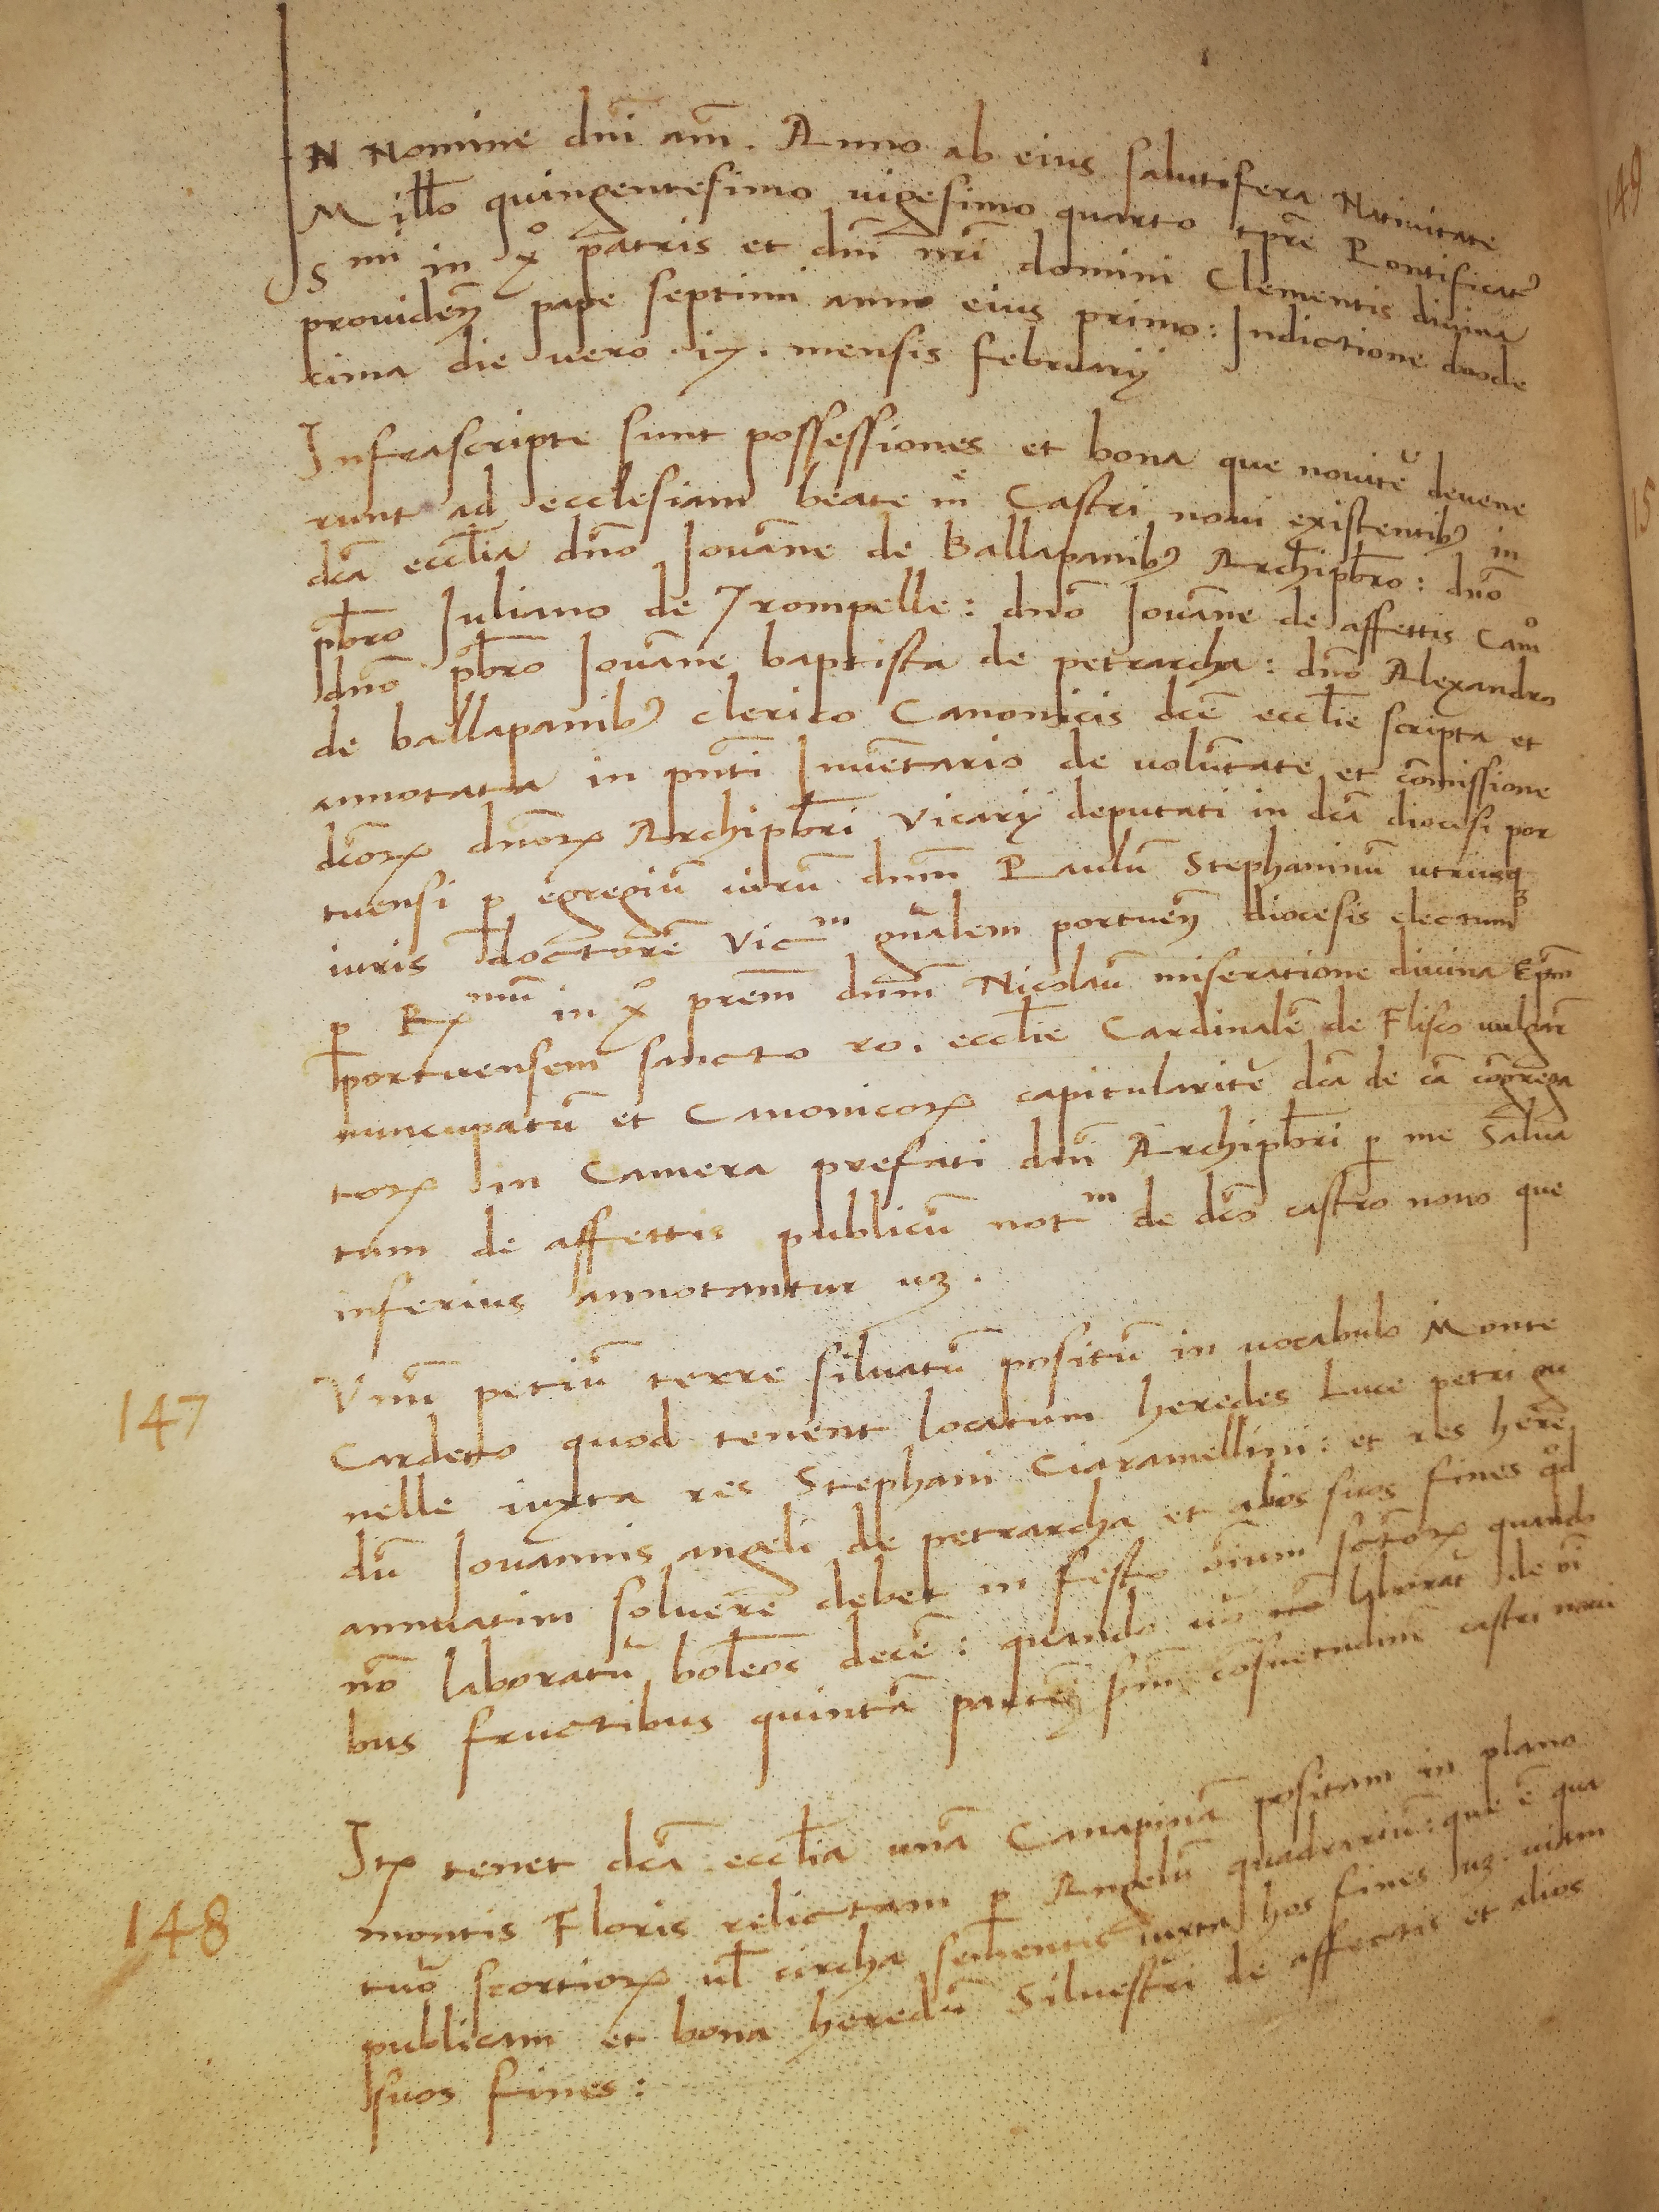 IN Nomine dñi am̃. Anno ab eius salutifera Natiuitate
Millo quingentesimo uigesimo quarto tpr̃e Pontificatꝰ
Smi in xº patris et dñi nr̃i domini Clementis diuina
prouideñ pape septimi anno eius primo: Indictione duode
cima die uero .ix. mensis februarij
Infrascripte sunt possessiones et bona que nouitẽ deuene
runt ad ecclesiam beate mẽ Castri noui existentibꝰ in
dc̃a eccl̃ia dño Iouãne de Ballapanibꝰ Archipb̃ro: dño
pb̃ro Iuliano de Trompelle: dño Iouãne de affettis Camº
dño pb̃ro Iouãne baptista de petrarcha: dño Alexandro
de ballapanibꝰ clerico Canonicis dc̃e eccl̃ie scripta et
annotata in pñti Inuẽtario de uolũtate et cõmissione
dc̃orꝝ dñorꝝ Archipb̃ri Vicarij deputati in dc̃a diocesi por
tuensi ꝑ egregiũ uirũ dñm Paulũ Stephaninũ utriusqꝫ
iuris doctorẽ Vicᵐ gñalem portueñ diocesis electum
ꝑ Rꝝmũ in xº prẽm dñm Nicolaũ miseratione diuina Ep̃m
portuensem sancto ro. eccl̃ie Cardinalẽ de Flisco uulgar̃
nuncupatũ et Canonicorꝝ capitularitẽ dc̃a de cã cõgrega
torꝝ in Camera prefati dñi Archipb̃ri ꝑ me Salua
tum de affettis publicũ notᵐ de dc̃o castro nouo que
inferius annotantur uꝫ.
147
Vnũ petiũ terre siluatũ positũ in uocabulo Monte
Cardeto quod tenent locatum heredes Luce petri gu
nelle iuxta res Stephani Ciaramellini: et res here
dũ Iouannis angeli de petrarcha et alios suos fines qd̃
annuatim soluerẽ debet in festo oĩum sc̃torꝝ quando
nõ laboratũ bol̃eos decẽ: quando uº de oĩ
bus fructibus quintã parteꝫ scd̃m cõsuetudinẽ castri noui
148
Itꝝ tenet dc̃a eccl̃ia unã Canapinã positam in plano
montis Floris relictam ꝑ Angelũ quadrariũ: que ẽ qua
tuo scortiorꝝ ul̃ circha semẽtis iuxta hos fines uꝫ. uiam
publicam et bona heredũ Siluestri de affectis et alios
suos fines:
149
15